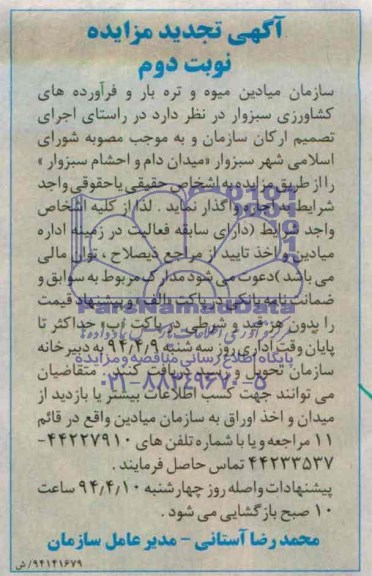 آگهی تجدید مزایده
نوبت دوم
سازمان میادین میوه و تره بار و فرآورده های
کشاورزی سبزوار در نظر دارد در راستای اجرای
تصمیم ارکان سازمان و به موجب مصوبه شورای
اسلامی شهر سبزوار «میدان دام و احشام سبزوار»
را از طریق مزایده به اشخاص حقیقی یا حقوقی واجد
شرایط به اجاره واگذار نماید . لذا از کلیه اشخاص
واجد شرایط (دارای سابقه فعالیت در زمینه اداره
میادین و اخذ تایید از مراجع ذیصلاح ، توان مالی
می باشد) دعوت می شود مدارک مربوط به سوابق و
ضمانت نامه بانکی در پاکت «الف» و پیشنهاد قیمت
را بدون هر قید و شرطی در پاکت «ب» حداکثر تا
پایان وقت اداری روز سه شنبه ۹۴/۴/۹ به دبیرخانه
سازمان تحویل و رسید دریافت کنند. متقاضیان
می توانند جهت کسب اطلاعات بیشتر یا بازدید از
میدان و اخذ اوراق به سازمان میادین واقع در قائم
۱۱ مراجعه و یا با شماره تلفن های ۴۴۲۲۷۹۱۰-
۴۴۲۳۳۵۳۷ تماس حاصل فرمایند .
پیشنهادات واصله روز چهارشنبه ۹۴/۴/۱۰ ساعت
۱۰ صبح بازگشایی می شود .
محمد رضا آستانی - مدیر عامل سازمان
۹۴۱۴۱۶۷۹/ش
ParsNamadData
پایگاه اطلاع رسانی مناقصه و مزایده
۰۲۱-۸۸۳۴۹۶۷۰-۵